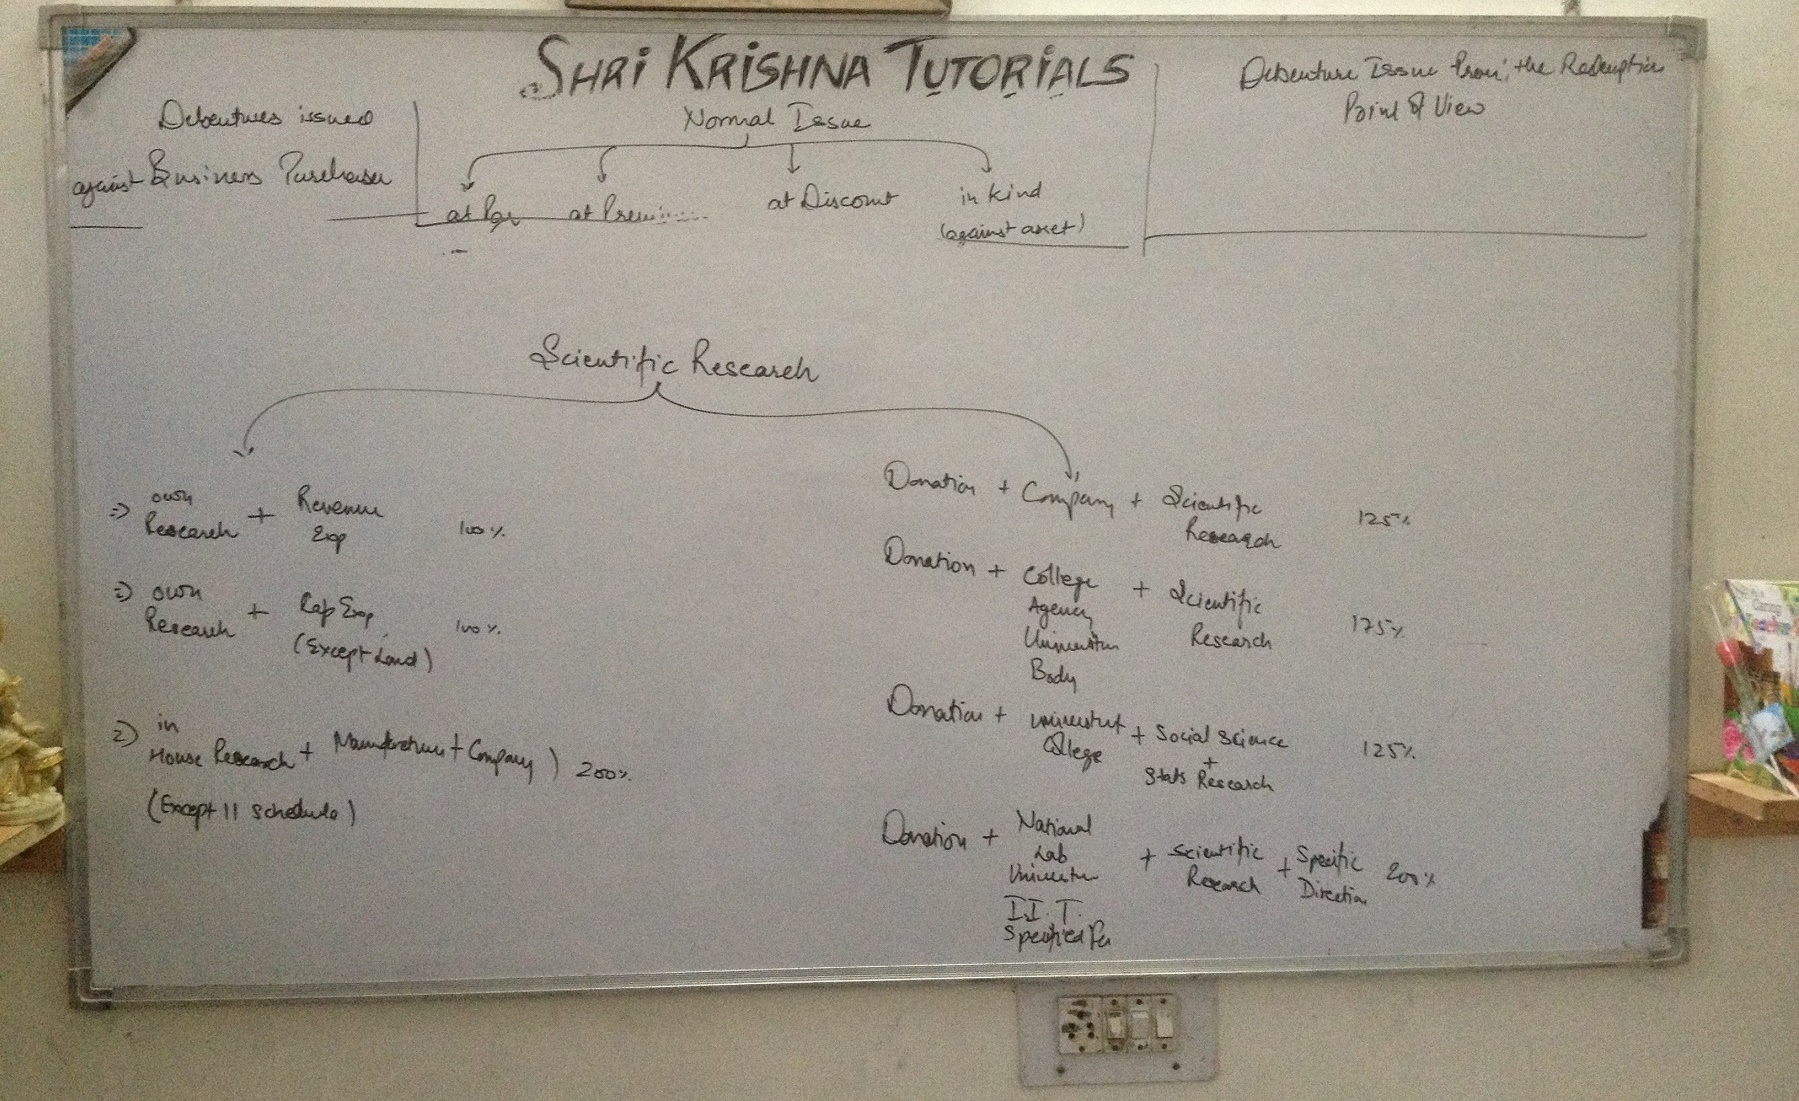 SHRI KRISHNA TUTORIALS
Debentures issued
against Business Purchases
Normal Issue
at Par
at Premium
at Discount
in Kind
(against asset)
Debenture Issue from the Redemption
Point of View
Scientific Research
=> own Research + Revenue Exp 100%
=> own Research + Cap Exp (Except Land) 100%
2) in House Research + Manufacture + Company) 200%
(Except 11 Schedule)
Donation + Company + Scientific Research 125%
Donation + College Agency University Body + Scientific Research 175%
Donation + University College + Social Science + Stats Research 125%
Donation + National Lab University I.I.T. Specified Per + Scientific Research + Specific Direction 200%